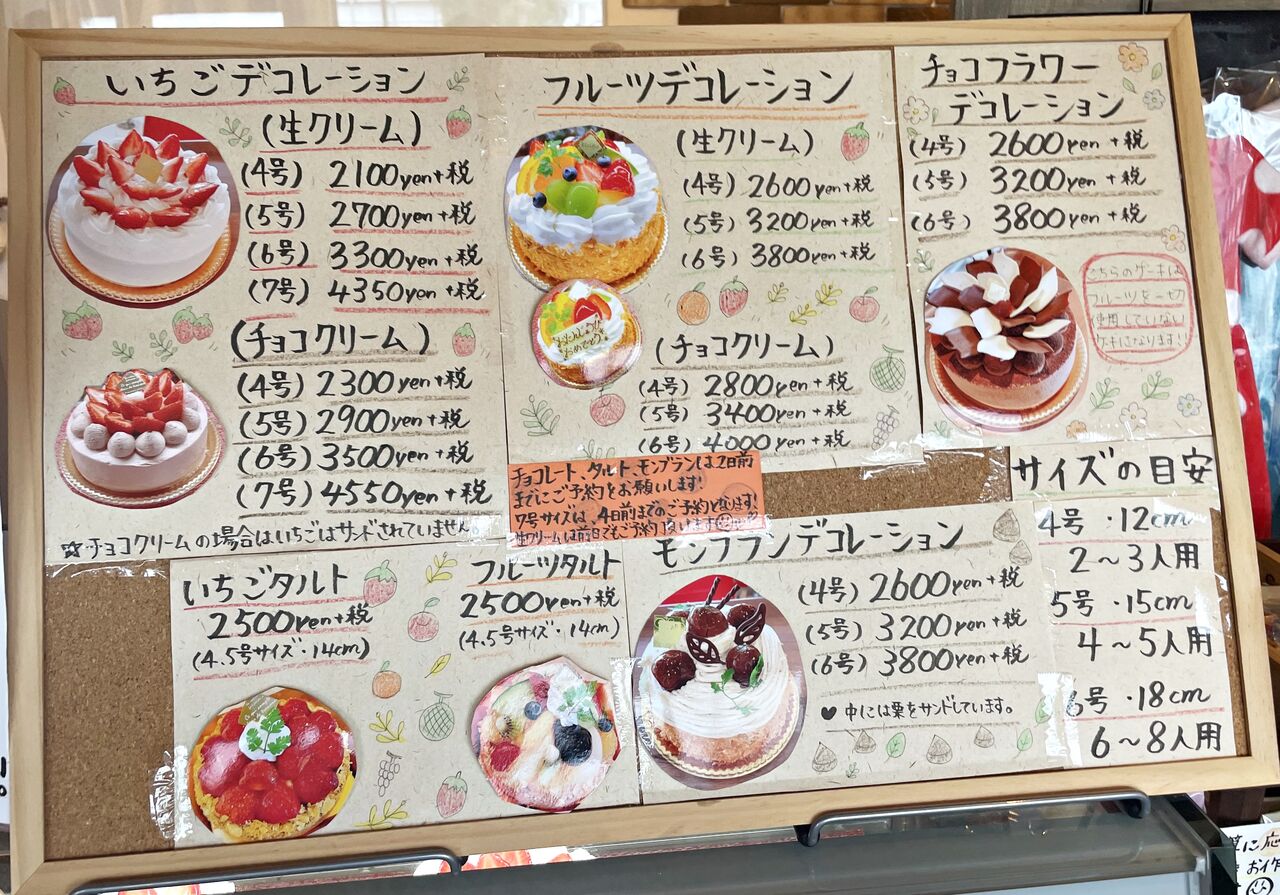 いちごデコレーション
(生クリーム)
(4号) 2100yen+税
(5号) 2700yen+税
(6号) 3300yen+税
(7号) 4350yen+税
(チョコクリーム)
(4号) 2300yen+税
(5号) 2900yen+税
(6号) 3500yen+税
(7号) 4550yen+税
☆チョコクリームの場合はいちごはサンドされていません
フルーツデコレーション
(生クリーム)
(4号) 2600yen+税
(5号) 3200yen+税
(6号) 3800yen+税
おたんじょうび
おめでとう
(チョコクリーム)
(4号) 2800yen+税
(5号) 3400yen+税
(6号) 4000yen+税
チョコフラワー
デコレーション
(4号) 2600yen+税
(5号) 3200yen+税
(6号) 3800yen+税
こちらのケーキは
フルーツを一切
使用していない
ケーキになります!!
チョコレート、タルト、モンブランは2日前
までにご予約をお願いします!
7号サイズは、4日前までのご予約となります!
生クリームは前日でもご予約頂けます
いちごタルト
2500yen+税
(4.5号サイズ・14cm)
フルーツタルト
2500yen+税
(4.5号サイズ・14cm)
モンブランデコレーション
(4号) 2600yen+税
(5号) 3200yen+税
(6号) 3800yen+税
♥ 中には栗をサンドしています。
サイズの目安
4号・12cm
2～3人用
5号・15cm
4～5人用
6号・18cm
6～8人用